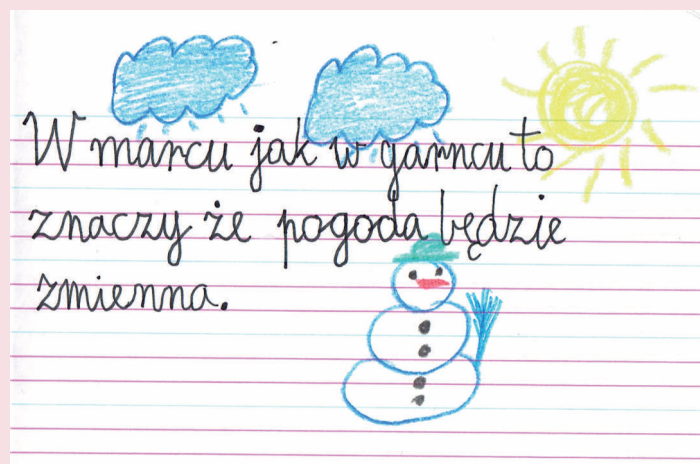 W marcu jak w garncu to
znaczy że pogoda będzie
zmienna.